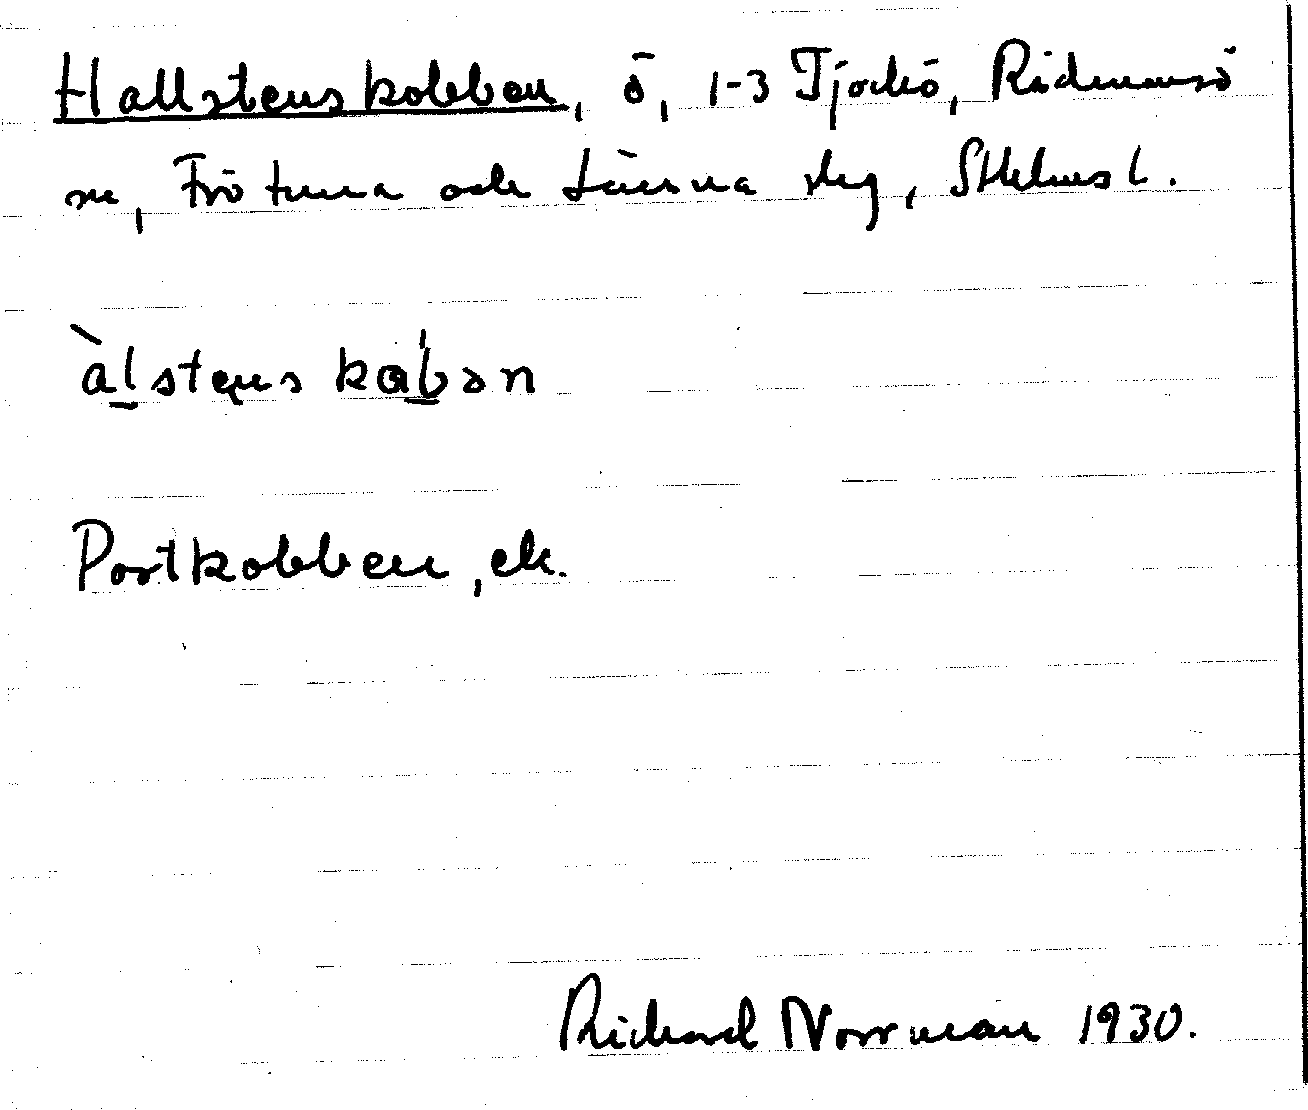 Hallstenskobben, ö, 1-3 Tjockö, Rådmansö
sn, Frötuna och Länna skg, Sthlms l.
àlstens kabən
Portkobben, ek.
Richard Norrman 1930.